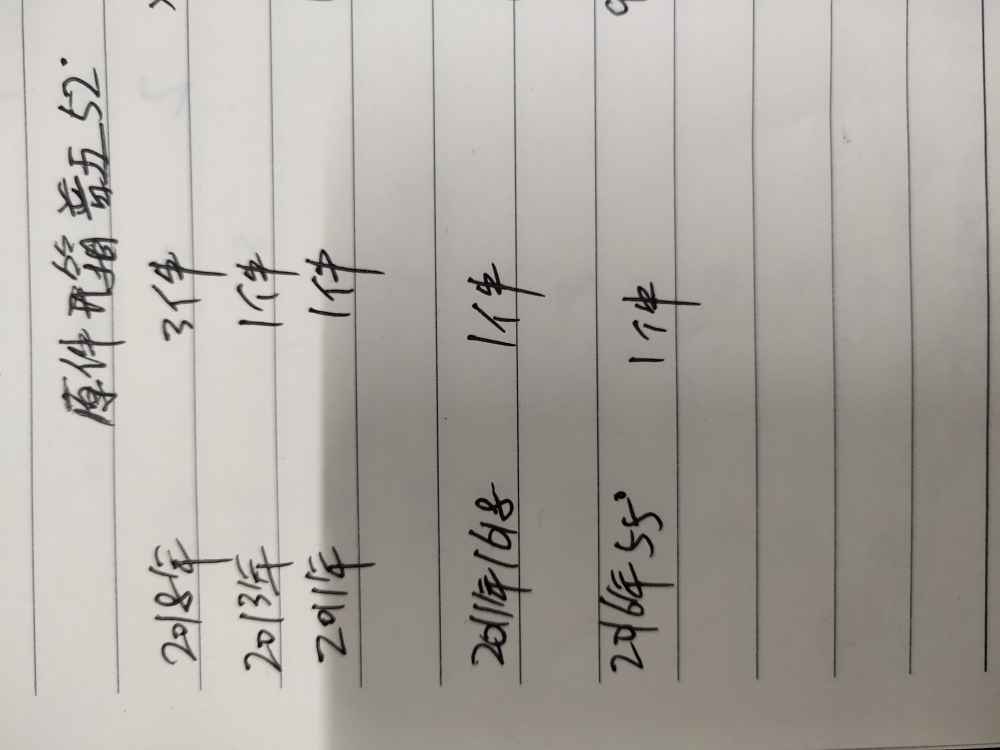 原件 普五 52°
2018年 3件
2013年 1件
2011年 1件
2011年1618 1件
2016年55° 1件